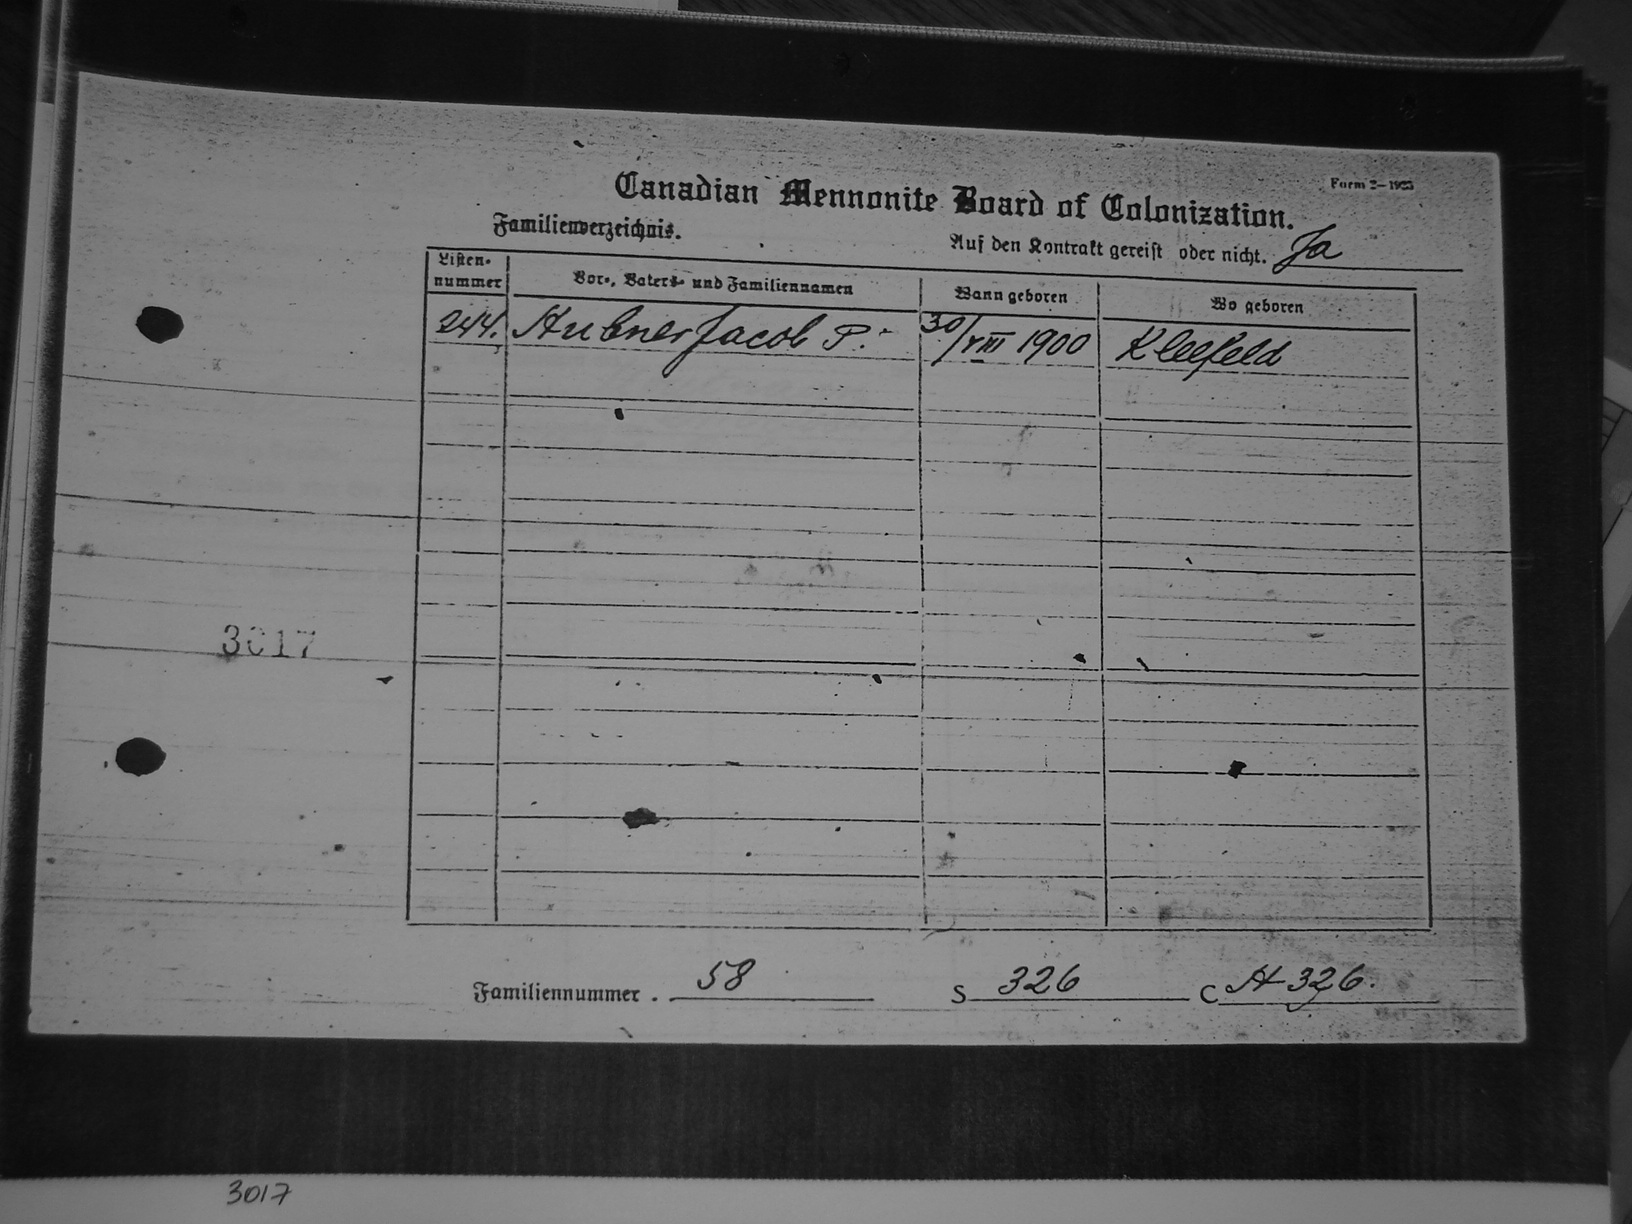 Form 2—1923
Canadian Mennonite Board of Colonization.
Familienverzeichnis.
Auf den Kontrakt gereist oder nicht. Ja
Listen-nummer Vor-, Vaters- und Familiennamen Wann geboren Wo geboren
244. Hubner Jacob P. 30/VIII 1900 Kleefeld
3017
Familiennummer . 58 S 326 C H 326.
3017